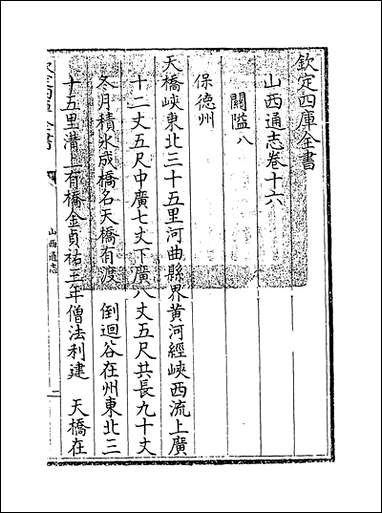 欽定四庫全書
山西通志卷十六
關隘八
保德州
天橋峽東北三十五里河曲縣界黃河經峽西流上廣
十二丈五尺中廣七丈下廣八丈五尺共長九十丈
冬月積氷成橋名天橋有渡 倒迴谷在州東北三
十五里溝上有橋金貞祐三年僧法利建 天橋在
山西通志